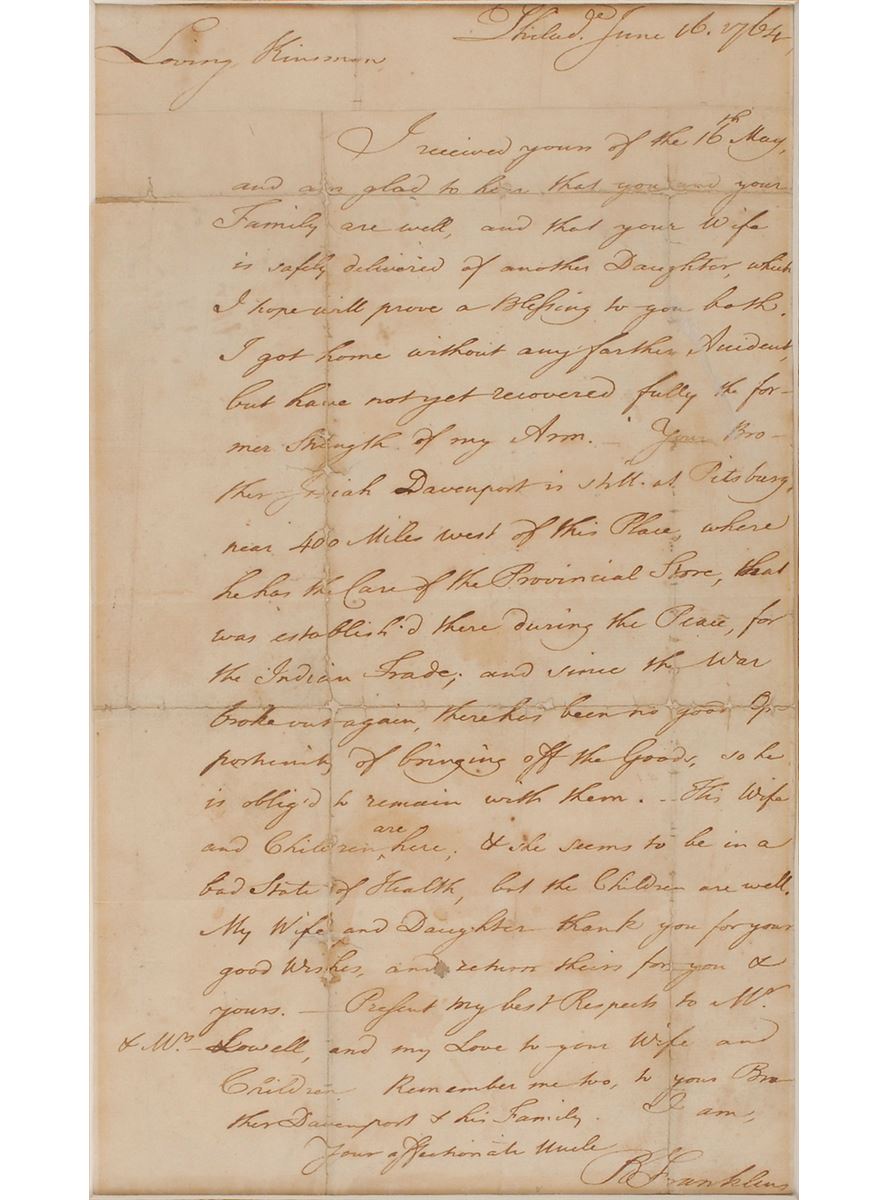 Philad.ª June 16. 1764,
Loving Kinsman
I received yours of the 16th May,
and am glad to hear that you and your
Family are well, and that your Wife
is safely delivered of another Daughter, which
I hope will prove a Blessing to you both.
I got home without any farther Accident,
but have not yet recovered fully the for-
mer Strength of my Arm. — Your Bro-
ther Josiah Davenport is still at Pitsburg,
near 400 Miles west of this Place, where
he has the Care of the Provincial Store, that
was establish'd there during the Peace, for
the Indian Trade; and since the War
broke out again, there has been no good Op-
portunity of bringing off the Goods, so he
is oblig'd to remain with them. — His Wife
and Children are here; & she seems to be in a
bad State of Health, but the Children are well.
My Wife and Daughter thank you for your
good Wishes, and return theirs for you &
yours. — Present my best Respects to Mr.
& Mrs. Lowell, and my Love to your Wife and
Children Remember me too, to your Bro-
ther Davenport & his Family. I am,
Your affectionate Uncle
B Franklin